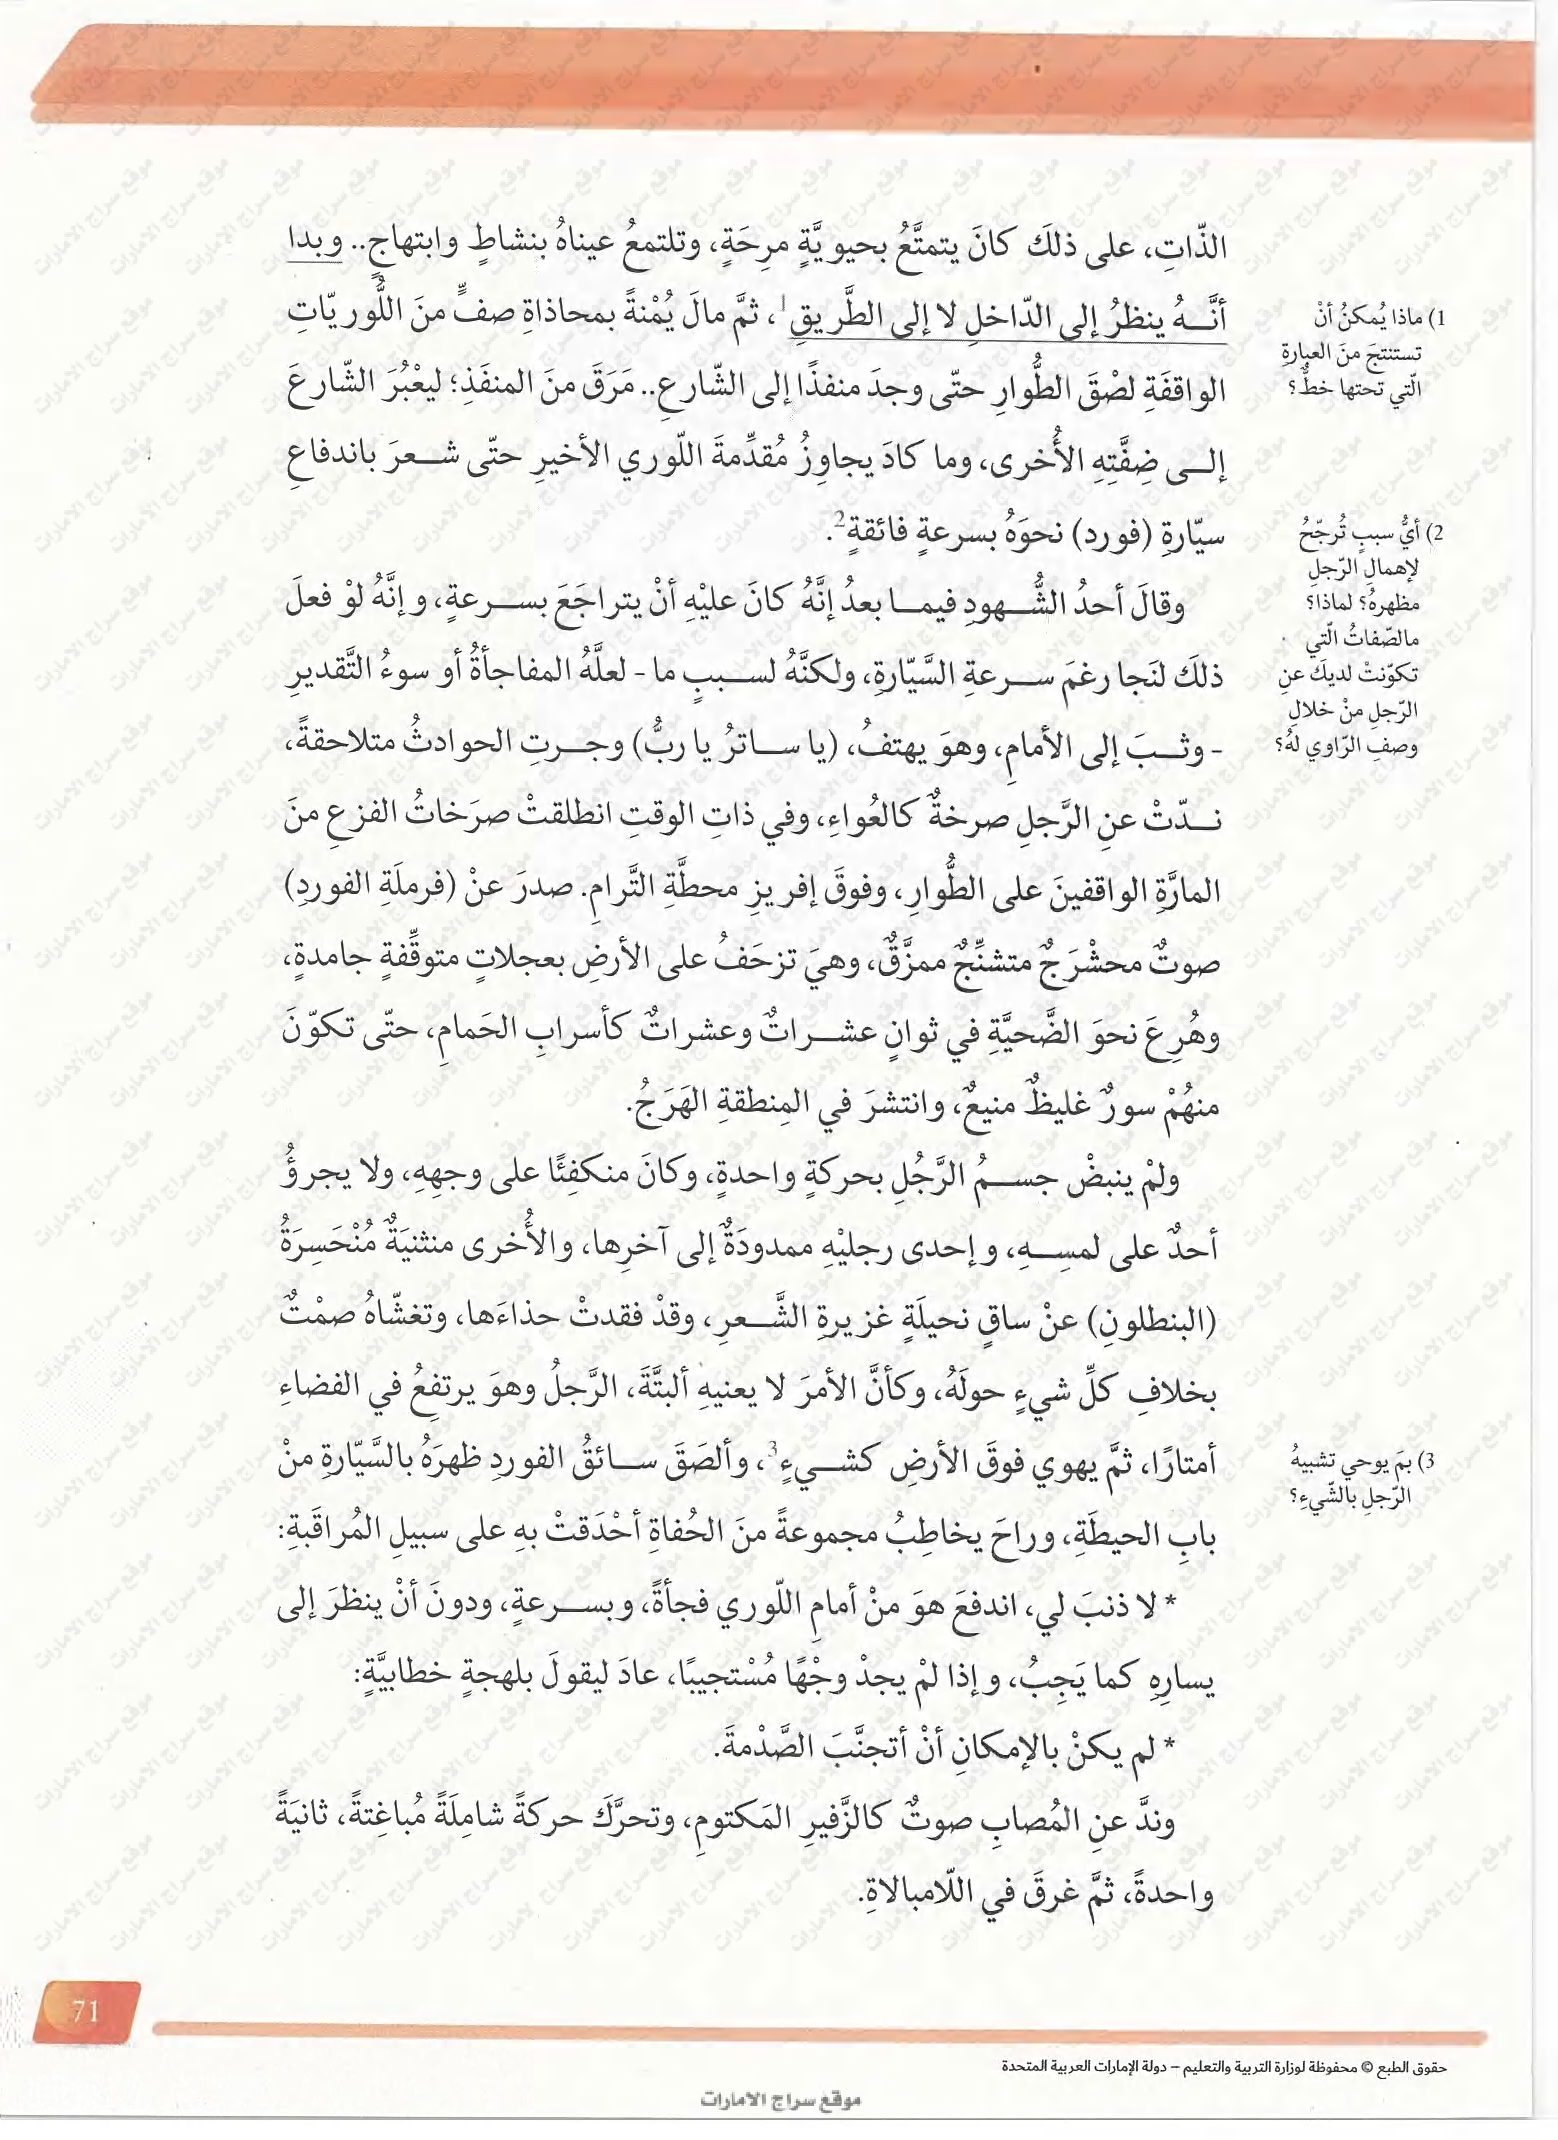 الذّاتِ، على ذلكَ كانَ يتمتَّعُ بحيويَّةٍ مرِحَةٍ، وتلتمعُ عيناهُ بنشاطٍ وابتهاجٍ.. وبدا
أنَّـهُ ينظرُ إلى الدّاخلِ لا إلى الطَّريقِ1، ثمَّ مالَ يُمْنةً بمحاذاةِ صفٍّ منَ اللُّوريّاتِ
الواقفَةِ لصْقَ الطُّوارِ حتّى وجدَ منفذًا إلى الشّارعِ.. مَرَقَ منَ المنفَذِ؛ ليعْبُرَ الشّارعَ
إلـى ضِفَّتِهِ الأُخرى، وما كادَ يجاوِزُ مُقدِّمةَ اللّوري الأخيرِ حتّى شـعرَ باندفاعِ
سيّارةِ (فورد) نحوَهُ بسرعةٍ فائقةٍ2.
وقالَ أحدُ الشُّـهودِ فيمـا بعدُ إنَّهُ كانَ عليْهِ أنْ يتراجَعَ بسـرعةٍ، وإنَّهُ لوْ فعلَ
ذلكَ لنَجا رغمَ سـرعةِ السَّيّارةِ، ولكنَّهُ لسـببٍ ما - لعلَّهُ المفاجأةُ أو سوءُ التَّقديرِ
- وثـبَ إلى الأمامِ، وهوَ يهتفُ، (يا سـاترُ يا ربُّ) وجـرتِ الحوادثُ متلاحقةً،
نـدّتْ عنِ الرَّجلِ صرخةٌ كالعُواءِ، وفي ذاتِ الوقتِ انطلقتْ صرَخاتُ الفزعِ منَ
المارَّةِ الواقفينَ على الطُّوارِ، وفوقَ إفريزِ محطَّةِ التَّرامِ. صدرَ عنْ (فرملَةِ الفوردِ)
صوتٌ محشْرَجٌ متشنِّجٌ ممزَّقٌ، وهيَ تزحَفُ على الأرضِ بعجلاتٍ متوقِّفةٍ جامدةٍ،
وهُرِعَ نحوَ الضَّحيَّةِ في ثوانٍ عشـراتٌ وعشراتٌ كأسرابِ الحَمامِ، حتّى تكوّنَ
منهُمْ سورٌ غليظٌ منيعٌ، وانتشرَ في المِنطقةِ الهَرَجُ.
ولمْ ينبضْ جسـمُ الرَّجُلِ بحركةٍ واحدةٍ، وكانَ منكفِئًا على وجهِهِ، ولا يجرؤُ
أحدٌ على لمسِـهِ، وإحدى رجليْهِ ممدودَةٌ إلى آخرِها، والأُخرى منثنيَةٌ مُنْحَسِرَةُ
(البنطلونِ) عنْ ساقٍ نحيلَةٍ غزيرةِ الشَّـعرِ، وقدْ فقدتْ حذاءَها، وتغشّاهُ صمْتٌ
بخلافِ كلِّ شيءٍ حولَهُ، وكأنَّ الأمرَ لا يعنيهِ ألبتَّةَ، الرَّجلُ وهوَ يرتفعُ في الفضاءِ
أمتارًا، ثمَّ يهوي فوقَ الأرضِ كشـيءٍ3، وألصَقَ سـائقُ الفوردِ ظهرَهُ بالسَّيّارةِ منْ
بابِ الحيطَةِ، وراحَ يخاطِبُ مجموعةً منَ الحُفاةِ أحْدَقتْ بهِ على سبيلِ المُراقَبةِ:
* لا ذنبَ لي، اندفعَ هوَ منْ أمامِ اللّوري فجأةً، وبسـرعةٍ، ودونَ أنْ ينظرَ إلى
يسارِهِ كما يَجِبُ، وإذا لمْ يجدْ وجْهًا مُسْتجيبًا، عادَ ليقولَ بلهجةٍ خطابيَّةٍ:
* لم يكنْ بالإمكانِ أنْ أتجنَّبَ الصَّدْمةَ.
وندَّ عنِ المُصابِ صوتٌ كالزَّفيرِ المَكتومِ، وتحرَّكَ حركةً شامِلَةً مُباغِتةً، ثانيَةً
واحدةً، ثمَّ غرقَ في اللّامبالاةِ.
1) ماذا يُمكنُ أنْ
تستنتجَ منَ العبارةِ
الّتي تحتها خطٌّ؟
2) أيُّ سببٍ تُرجّحُ
لإهمالِ الرّجلِ
مظهرهُ؟ لماذا؟
مالصّفاتُ الّتي
تكوّنتْ لديكَ عنِ
الرّجلِ منْ خلالِ
وصفِ الرّاوي لهُ؟
3) بمَ يوحي تشبيهُ
الرّجلِ بالشّيءِ؟
71
حقوق الطبع © محفوظة لوزارة التربية والتعليم – دولة الإمارات العربية المتحدة
موقع سراج الامارات